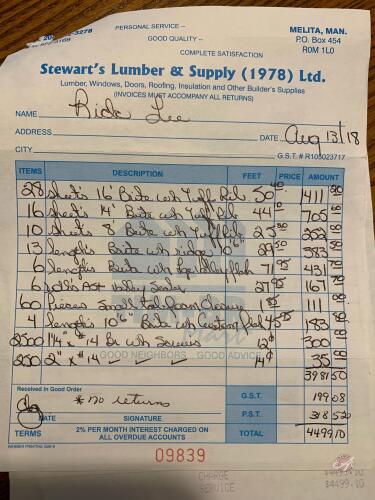 PERSONAL SERVICE –
GOOD QUALITY –
COMPLETE SATISFACTION
MELITA, MAN.
P.O. Box 454
R0M 1L0
Stewart's Lumber & Supply (1978) Ltd.
Lumber, Windows, Doors, Roofing, Insulation and Other Builder's Supplies
(INVOICES MUST ACCOMPANY ALL RETURNS)
NAME Rick Lee
ADDRESS DATE Aug 13/18
CITY G.S.T. # R105023717
ITEMS DESCRIPTION FEET PRICE AMOUNT
28 sheets 16' Brite wh Tuff Rib 50 40 1411 20
16 sheets 14' Brite wh Tuff Rib 44 10 705 60
10 sheets 8' Brite wh Tuff Rib 25 20 252
13 lengths Brite wh ridge 10'6" 29 50 383 50
6 lengths Brite wh 71 95 431 70
6 rolls 27 95 167 70
60 pieces Small Closure 111
4 lengths 10'6" Brite wh Custom 183
2500 1¼" x #14 Br wh Screws 12¢ 300
250 2" x #14 14¢ 35
GOOD NEIGHBORS... GOOD ADVICE
3981 50
Received In Good Order
* no returns
SIGNATURE
G.S.T. 199 08
P.S.T. 318 52
TERMS 2% PER MONTH INTEREST CHARGED ON ALL OVERDUE ACCOUNTS
TOTAL 4499 10
09839
CHARGE
SERVICE
$4499.10